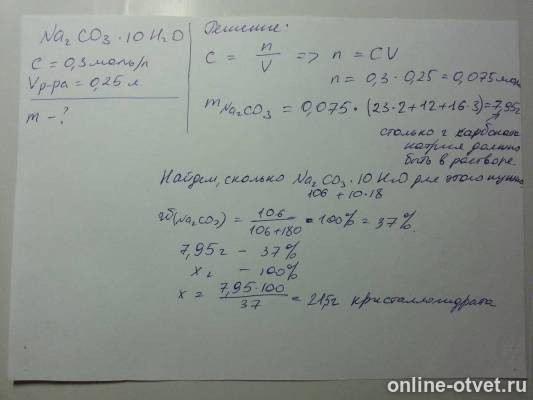 Na₂CO₃·10H₂O
C = 0,3 моль/л
Vр-ра = 0,25 л
m - ?
Решение:
C = n/V => n = CV
n = 0,3 · 0,25 = 0,075 моль
mNa₂CO₃ = 0,075 · (23·2+12+16·3) = 7,95г
столько г карбоната
натрия должно
быть в растворе
Найдем, сколько Na₂CO₃·10H₂O для этого нужно
106 + 10·18
(Na₂CO₃) = 106/(106+180) · 100% = 37%.
7,95г - 37%
x г - 100%
x = 7,95·100/37 = 21,5г кристаллогидрата
online-otvet.ru